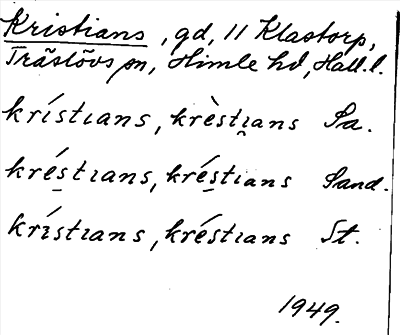 Kristians, gd, 11 Klastorp,
Träslövs sn, Himle hd, Hall. l.
krístıans, krèstı̯ans Sa.
kré̱stıans, kré̱stıans Sand.
krístıans, kréstıans St.
1949.